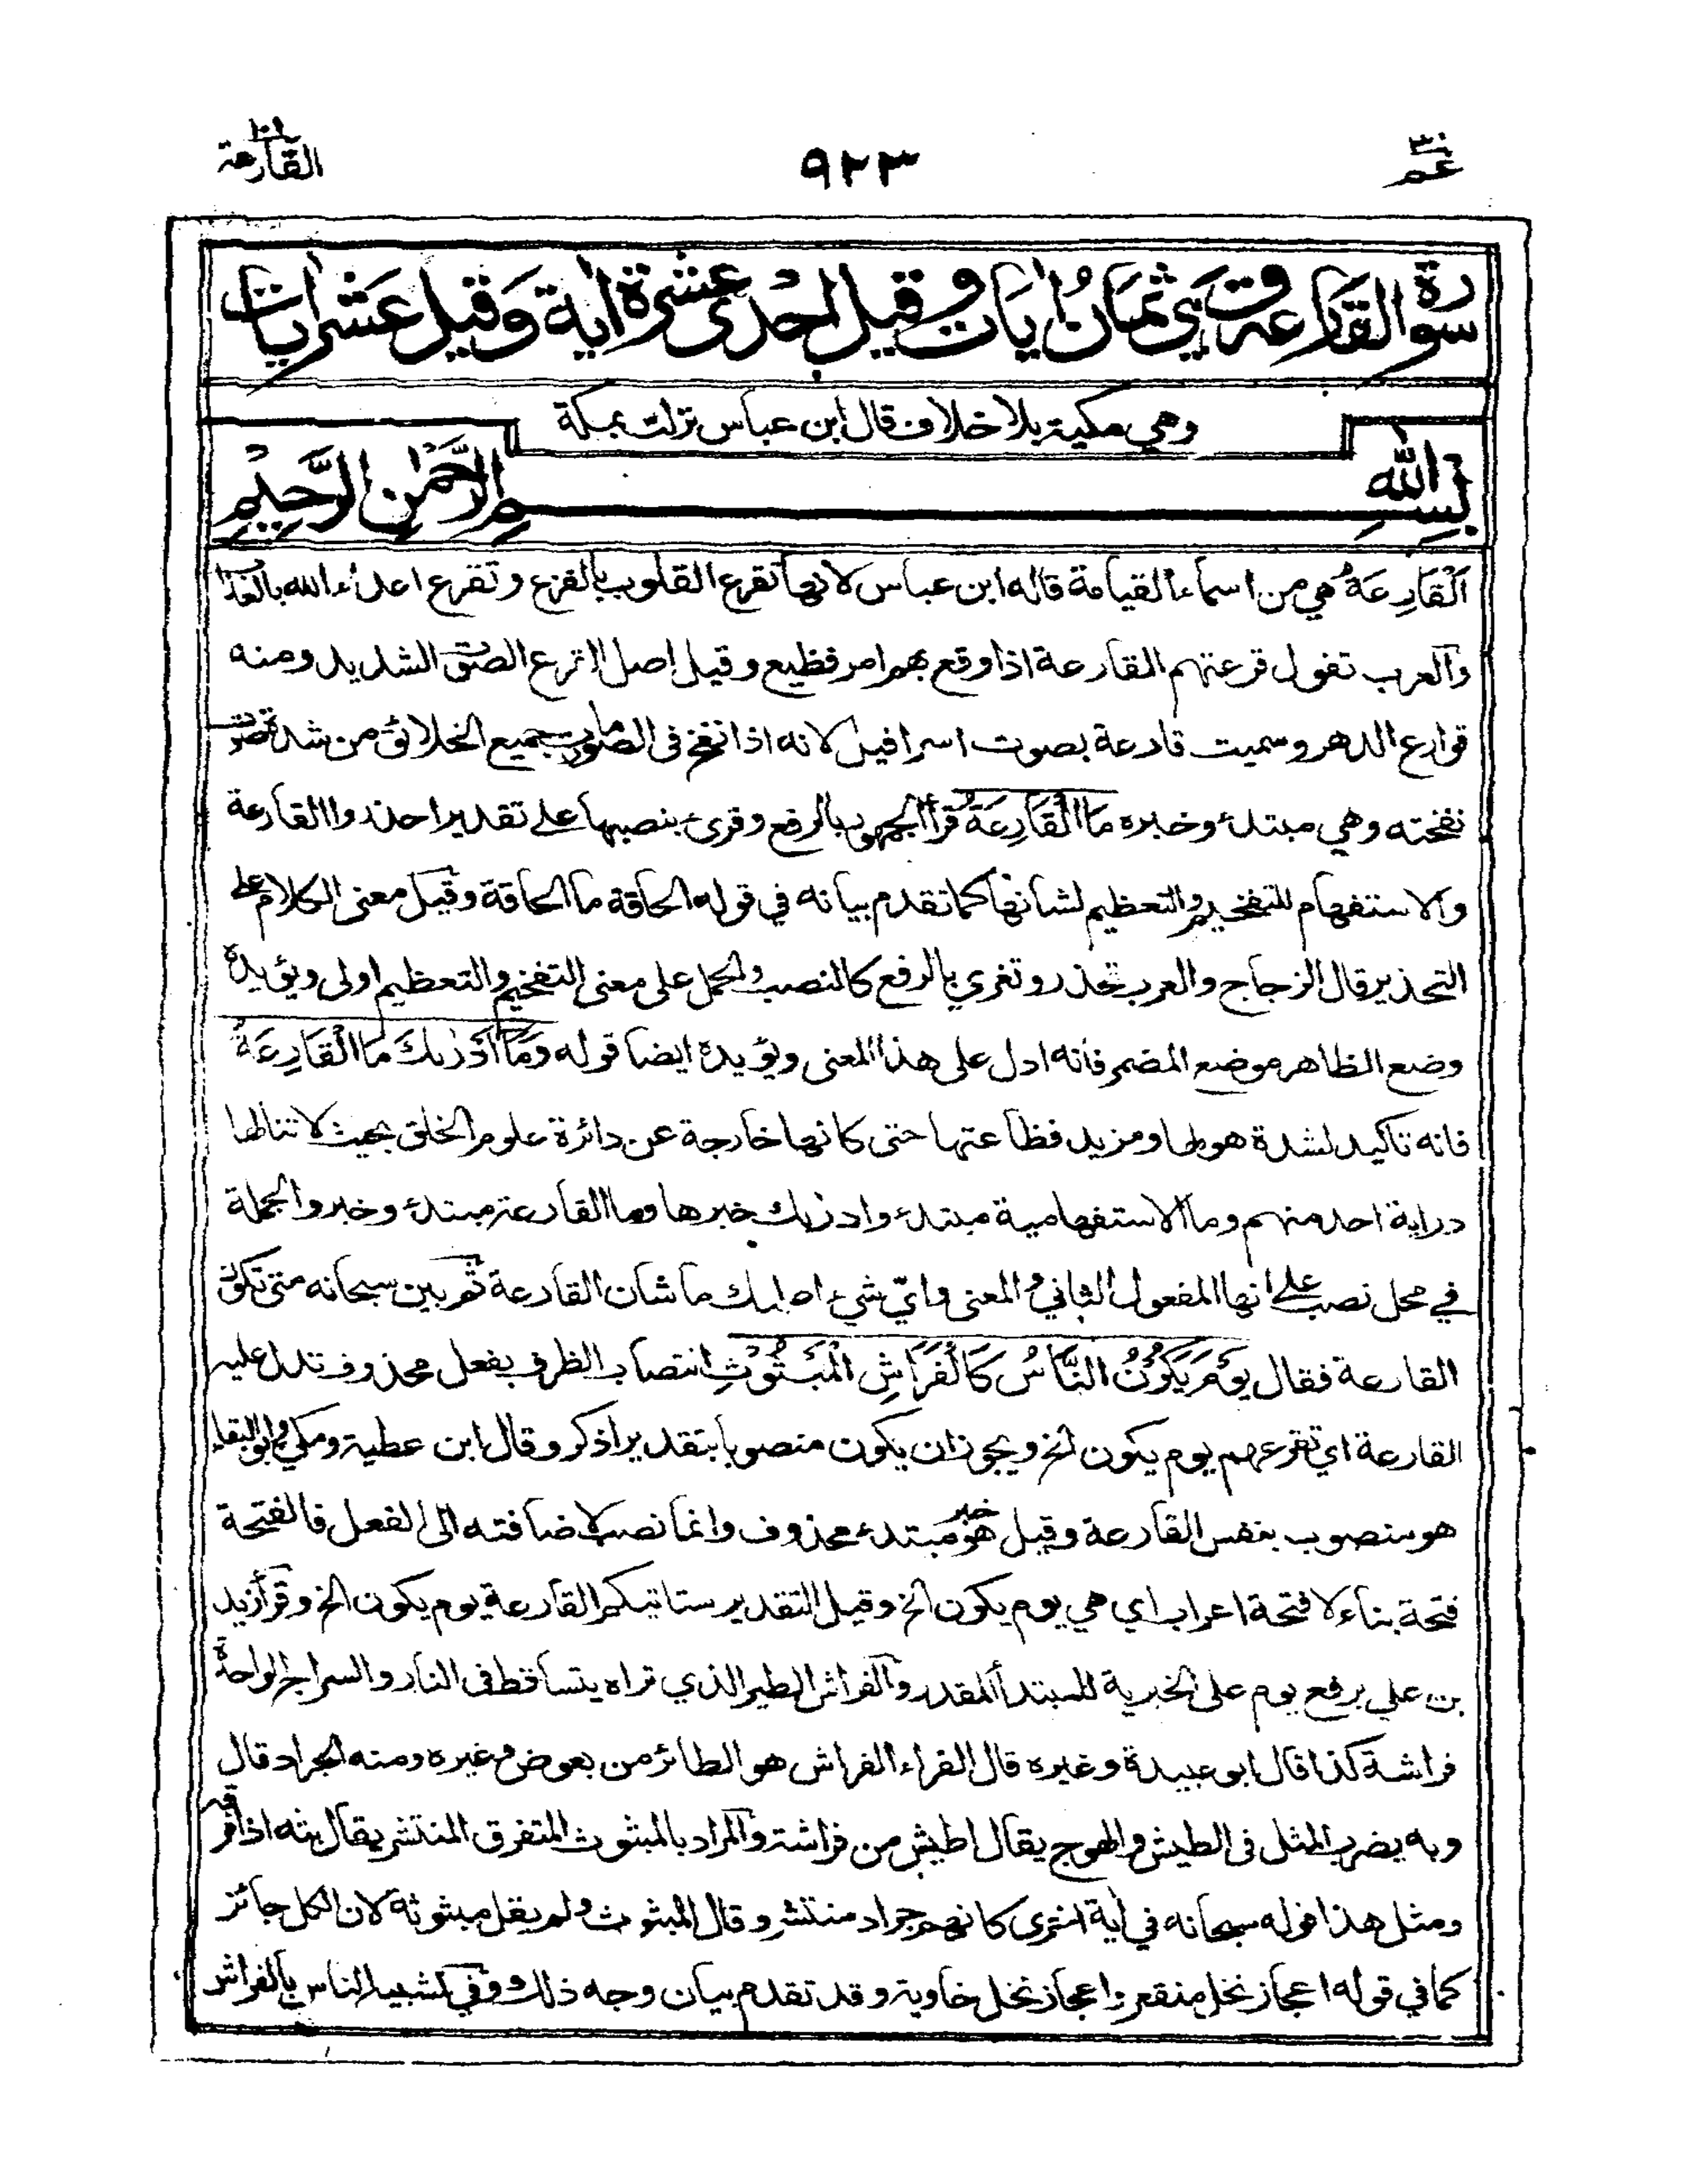 عم ٣٠
٩٢٣
القارعة ١٠١
سورة القارعة وهي ثمان اٰيات وقيل احدى عشرة اٰية وقيل عشر اٰيات
وهي مكية بلا خلاف قال ابن عباس نزلت بمكة
بسم الله الرحمٰن الرحيم
اَلْقَارِعَةُ هي من اسماء القيامة قاله ابن عباس لانها تقرع القلوب بالفزع وتقرع اعداء الله بالعذاب
والعرب تقول قرعتهم القارعة اذا وقع بهم امر فظيع وقيل اصل القرع الصوت الشديد ومنه
قوارع الدهر وسميت قارعة بصوت اسرافيل لانه اذا نفخ فى الصور مات جميع الخلائق من شدة صوت
نفخته وهي مبتدء وخبره مَا الْقَارِعَةُ قرأ الجمهور بالرفع وقرئ بنصبها على تقدير احذروا القارعة
والاستفهام للتفخيم والتعظيم لشانها كما تقدم بيانه في قوله الحاقة ما الحاقة وقيل معنى الكلام على
التحذير قال الزجاج والعرب تحذر وتغري بالرفع كالنصب والحمل على معنى التفخيم والتعظيم اولى ويؤيده
وضع الظاهر موضع المضمر فانه ادل على هذا المعنى ويؤيده ايضا قوله وَمَا اَدْرٰىكَ مَا الْقَارِعَةُ
فانه تاكيد لشدة هولها ومزيد فظاعتها حتى كانها خارجة عن دائرة علوم الخلق بحيث لا تنالها
دراية احد منهم وما الاستفهامية مبتدء وادرٰىك خبرها وما القارعة مبتدء وخبر والجملة
في محل نصب على انها المفعول الثاني والمعنى واي شيء اعلمك ما شان القارعة ثم بين سبحانه متى تكون
القارعة فقال يَوْمَ يَكُوْنُ النَّاسُ كَالْفَرَاشِ الْمَبْثُوْثِ انتصاب الظرف بفعل محذوف تدل عليه
القارعة اي تقرعهم يوم يكون الخ ويجوز ان يكون منصوبا بتقدير اذكر وقال ابن عطية ومكي وابو البقاء
هو منصوب بنفس القارعة وقيل هو خبر مبتدء محذوف وانما نصب لاضافته الى الفعل فالفتحة
فتحة بناء لا فتحة اعراب اي هي يوم يكون الخ وقيل التقدير ستاتيكم القارعة يوم يكون الخ وقرأ زيد
بن علي برفع يوم على الخبرية للمبتدأ المقدر والفراش الطير الذي تراه يتساقط فى النار والسراج الواحدة
فراشة كذا قال ابو عبيدة وغيره قال الفراء الفراش هو الطائر من بعوض وغيره ومنه الجراد قال
وبه يضرب المثل فى الطيش والهوج يقال اطيش من فراشة والمراد بالمبثوث المتفرق المنتشر يقال بثه اذا فرقه
ومثل هذا قوله سبحانه في اٰية اخرى كانهم جراد منتشر وقال المبثوث ولم يقل مبثوثة لان الكل جائز
كما في قوله اعجاز نخل منقعر واعجاز نخل خاوية وقد تقدم بيان وجه ذلك وفي تشبيه الناس بالفراش